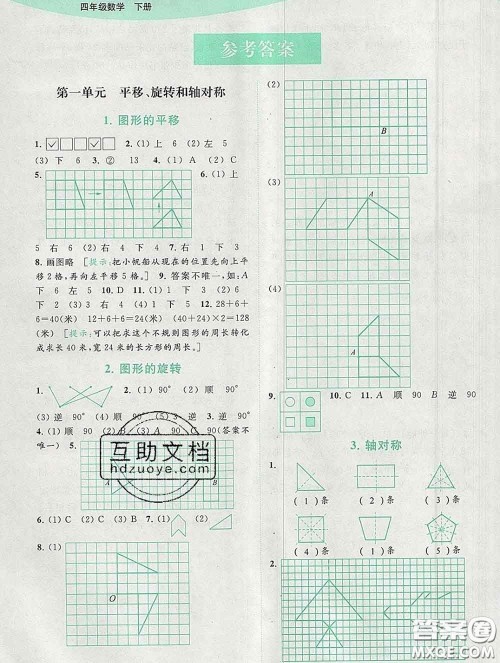 四年级数学 下册
参考答案
第一单元 平移、旋转和轴对称
1. 图形的平移
1. ✓ ✓ 2. (1)上 6 (2)左 5
(3)下 6 3. ② 4. (1)13 (2)C
5. 6. (1)上
5 右 6 (2)右 4 下 4 7. 右 1 下 3
8. 画图略 [提示:把小帆船从现在的位置先向上平
移2格,再向左平移5格。] 9. 答案不唯一,如:A
下 6 左 2 10. D 11. (1)下 6 右 6 (2)右
6 下 2 (3)下 4 右 5 12. 28+6+
6=40(米) 12+6+6=24(米) 40×2+24×2=128
(米) [提示:可以把求这个不规则图形的周长转化
成求长40米,宽24米的长方形的周长。]
2. 图形的旋转
1. 2. (1)顺 90° (2)逆 90°
(3)逆 90° (4)顺 90° (5)3 逆 90°
3. (1)A 顺 90 (2)A 逆 90 4. C(答案不
唯一) 5.
A B
6. (1)D (2)B 7. (1) (2)
8. (1)
O
(2)
B
(3)
A
(4)
A
9. 10. C 11. A 顺 90 B 逆 90
3. 轴对称
1.
(1)条 (2)条 (3)条
(4)条 (1)条 (5)条
2.
互助文档
hdzuoye.com
答案圈
MXQE.COM